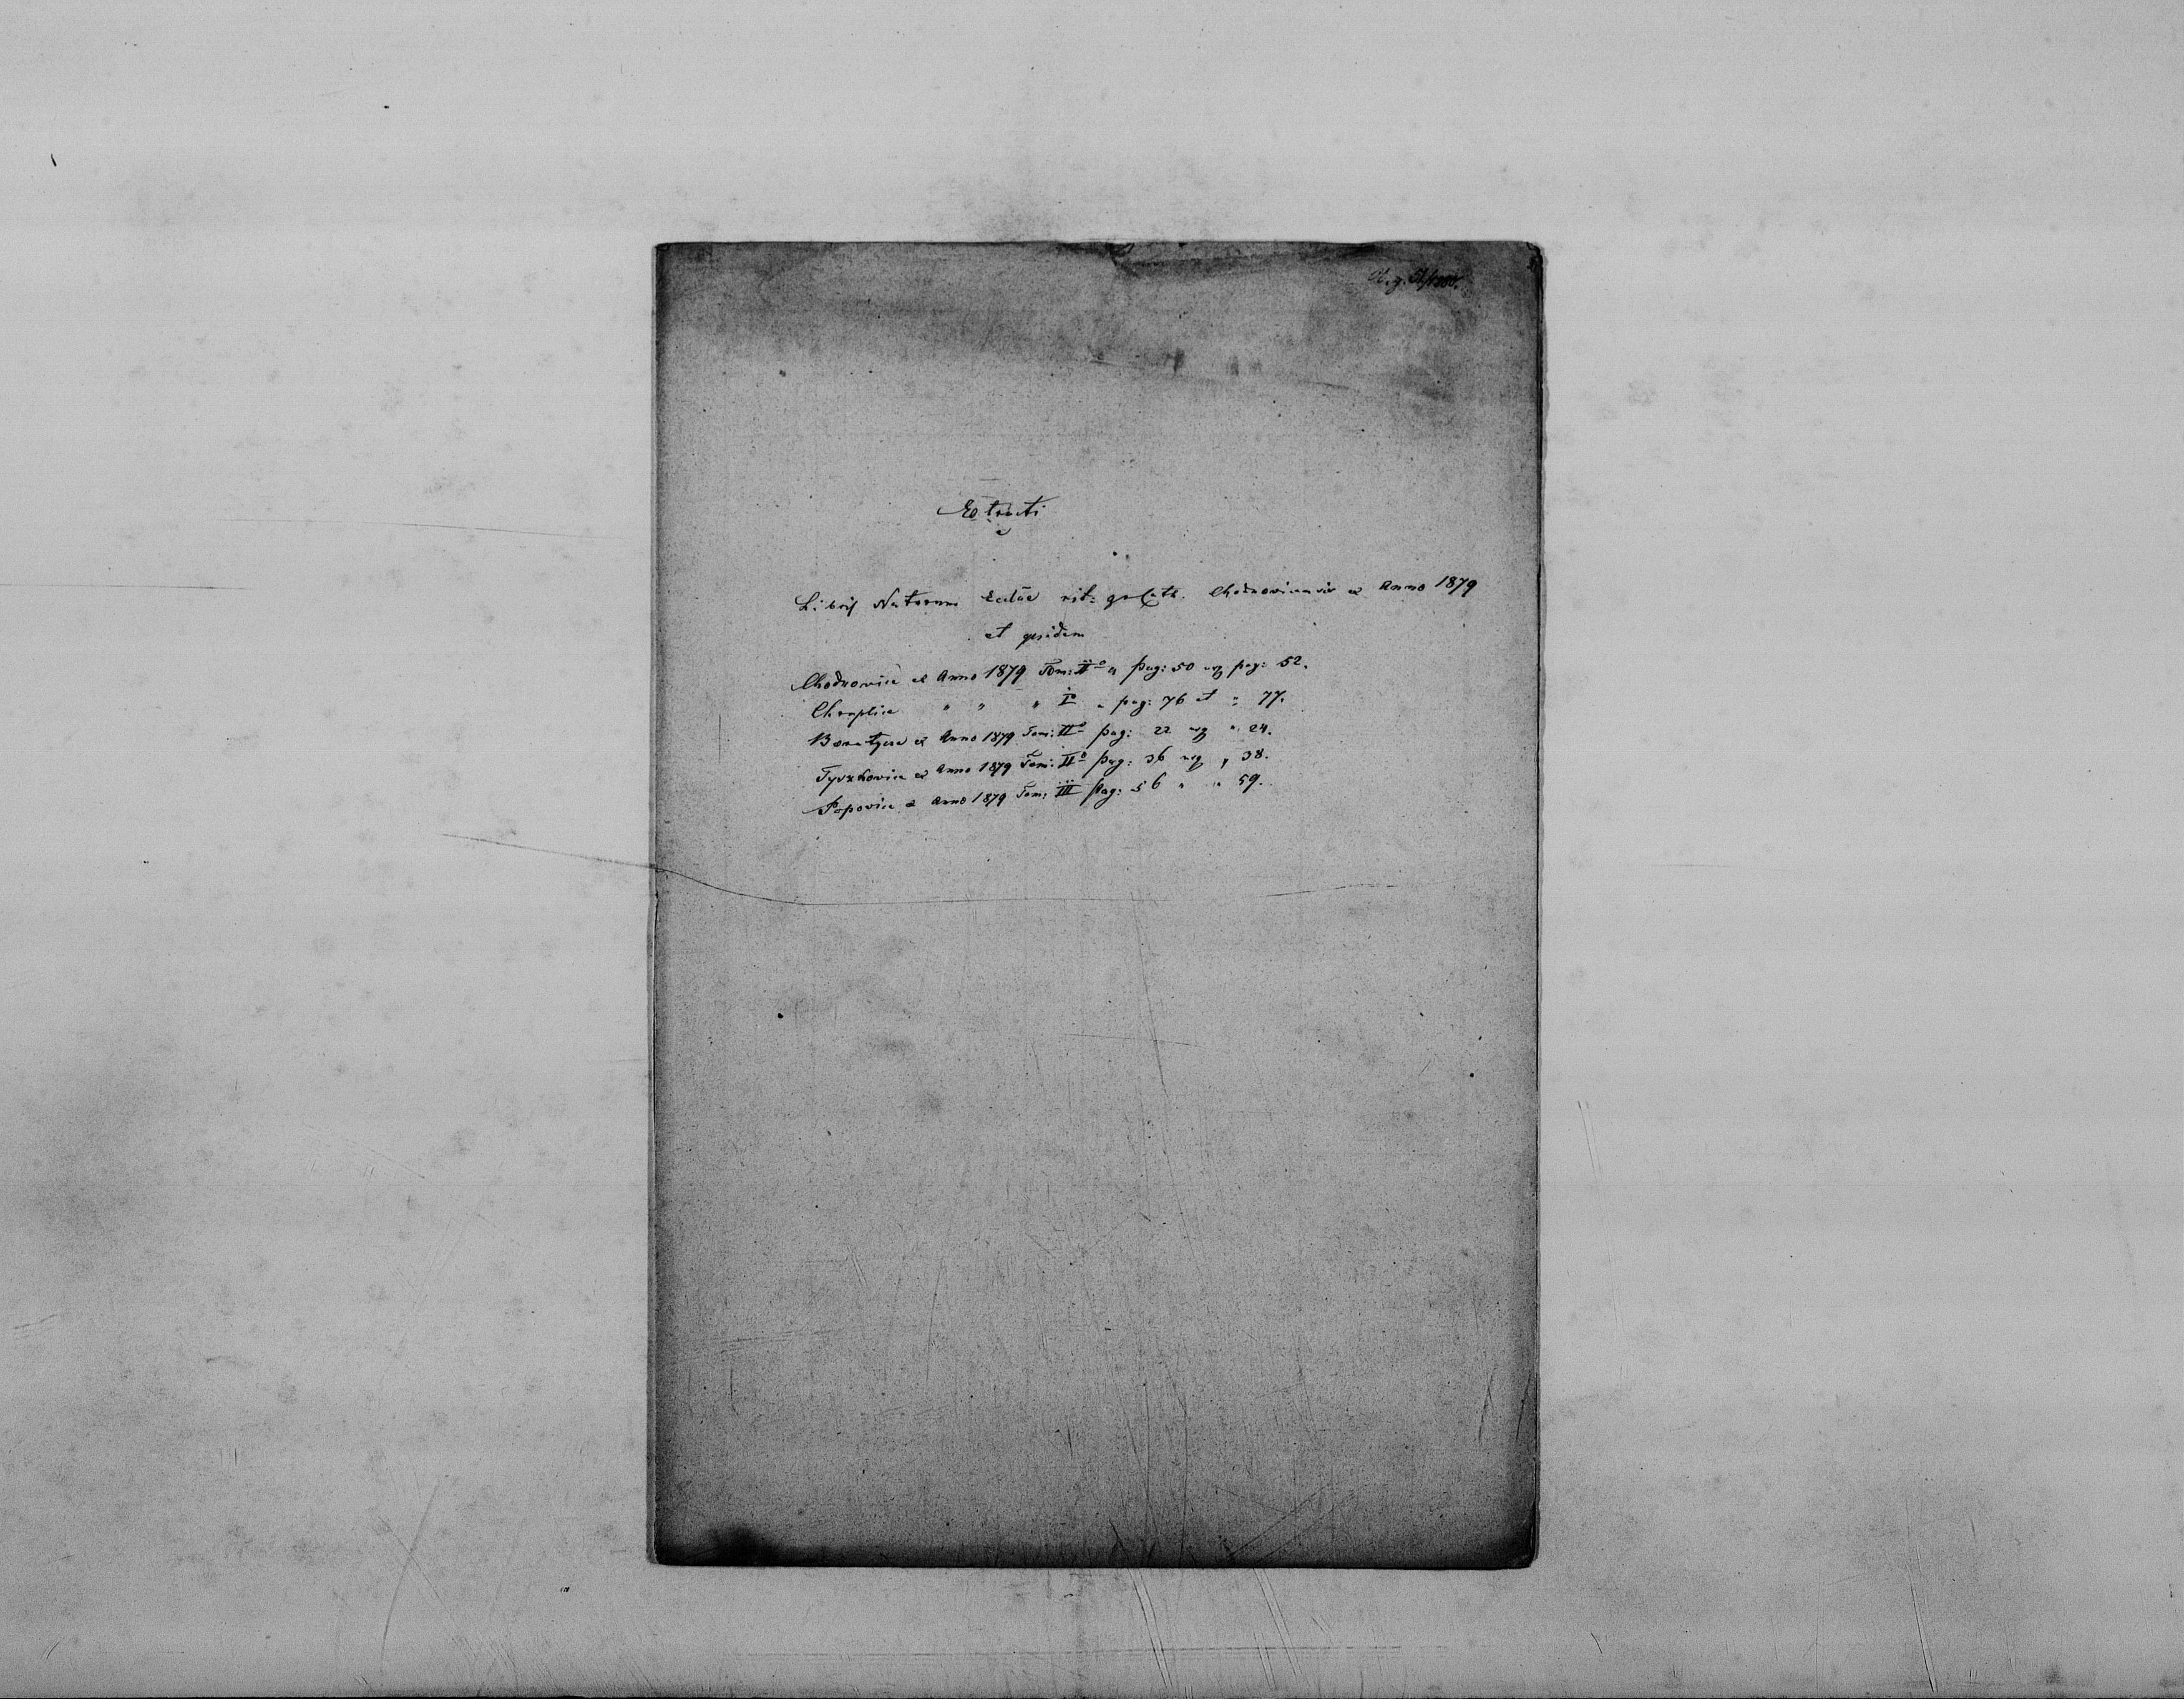 Extracti
e
Libris Natorum Ecclae rit: gr. cath. Chodnoviensis ex Anno 1879
et quidem
Chodnovice ex Anno 1879 Tom: IIo a pag: 50 usq pag: 52.
Chraplice " " " Io " pag: 76 et " 77.
Boratycze ex Anno 1879 Tom: IIo pag: 22 usq " 24.
Tyszkovice ex Anno 1879 Tom: IIo pag: 36 usq " 38.
Popovice ex Anno 1879 Tom: III pag: 56 " " 59.